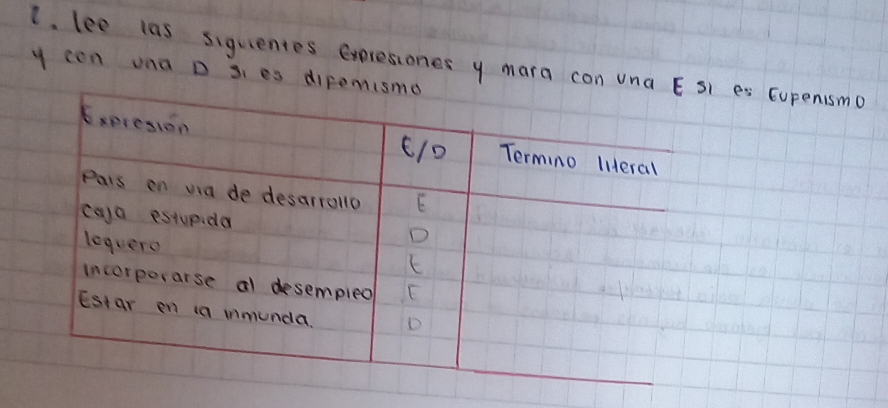 2. lee las siguientes expresiones y mara con una E si es Eufemismo
y con una D si es difemismo
Expresión E/D Termino literal
Pais en via de desarrollo E
caja estupida D
loquero E
incorporarse al desempleo E
Estar en la inmunda. D